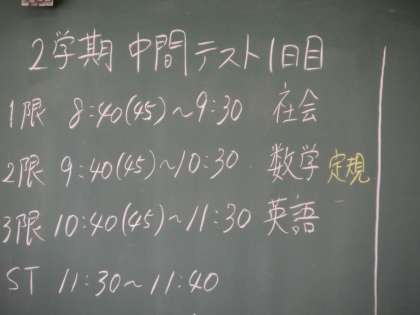 2学期 中間テスト1日目
1限 8:40(45)～9:30 社会
2限 9:40(45)～10:30 数学 定規
3限 10:40(45)～11:30 英語
ST 11:30～11:40